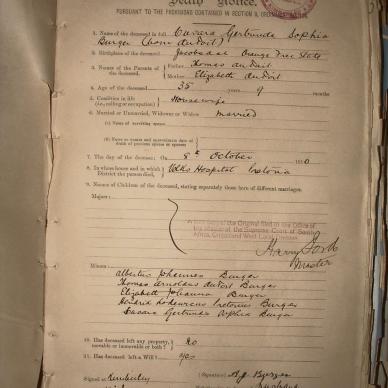 Death Notice.
PURSUANT TO THE PROVISIONS CONTAINED IN SECTION 9, ORDINANCE
1. Name of the deceased in full Susara Gertruida Sophia
Burger (born du Toit)
2. Birthplace of the deceased Jacobsdal Orange Free State
3. Names of the Parents of the deceased. Father Thomas du Toit
Mother Elizabeth du Toit
4. Age of the deceased 35 years 9 months
5. Condition in life (i.e., calling or occupation) Housewife
6. Married or Unmarried, Widower or Widow married
(a) Name of surviving spouse
(b) Name or names and approximate date of death of previous spouse or spouses
7. The day of the decease: On 8th October
8. In whose house and in which District the person died, Volks Hospital Pretoria
9. Names of Children of the deceased, stating separately those born of different marriages.
Majors:
of the Original filed in the Office
of the Supreme Court of South
Africa, Griqualand West Local Division
Master
Minors:
Albertus Johannes Burger
Thomas Arnoldus du Toit Burger
Elizabeth Johanna Burger
Hendrik Burger
Susara Gertruida Sophia Burger
10. Has deceased left any property, movable or immovable or both?
11. Has deceased left a Will? yes
Signed at Kimberley
(Signature) Burger
husband